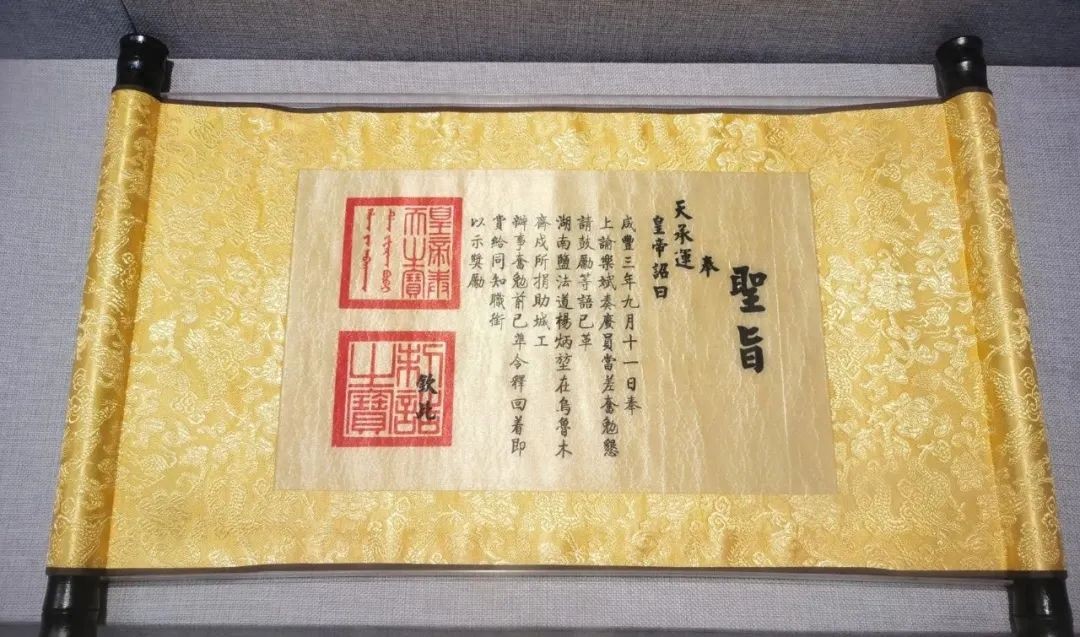 聖旨
奉
天承運
皇帝詔曰
咸豐三年九月十一日奉
上諭樂斌奏廢員當差奮勉懇
請鼓勵等語已革
湖南鹽法道楊炳堃在烏魯木
齋戍所捐助城工
辦事奮勉前已準令釋回着即
賞給同知職銜
以示獎勵
欽此
皇帝奉
天之寶
制誥
之寶